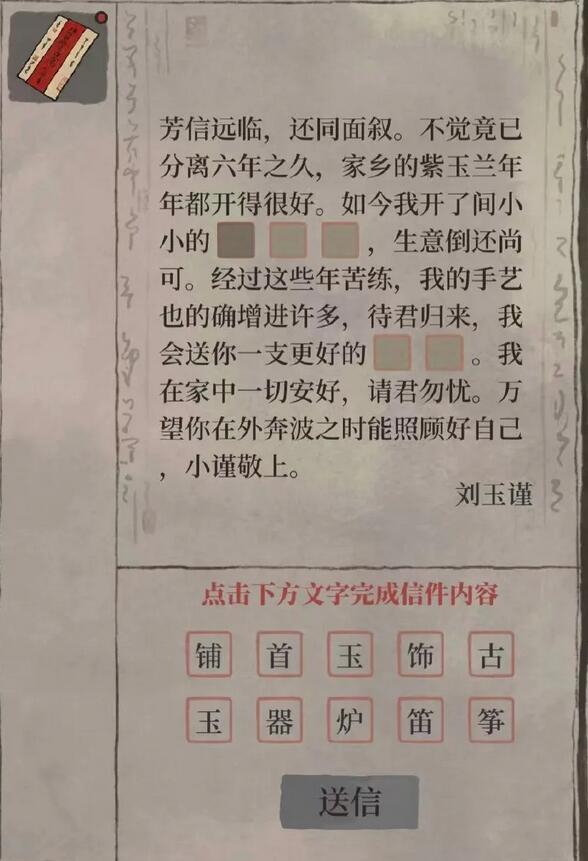 芳信远临，还同面叙。不觉竟已
分离六年之久，家乡的紫玉兰年
年都开得很好。如今我开了间小
小的，生意倒还尚
可。经过这些年苦练，我的手艺
也的确增进许多，待君归来，我
会送你一支更好的。我
在家中一切安好，请君勿忧。万
望你在外奔波之时能照顾好自己
，小谨敬上。
刘玉谨
点击下方文字完成信件内容
铺首玉饰古
玉器炉笛筝
送信